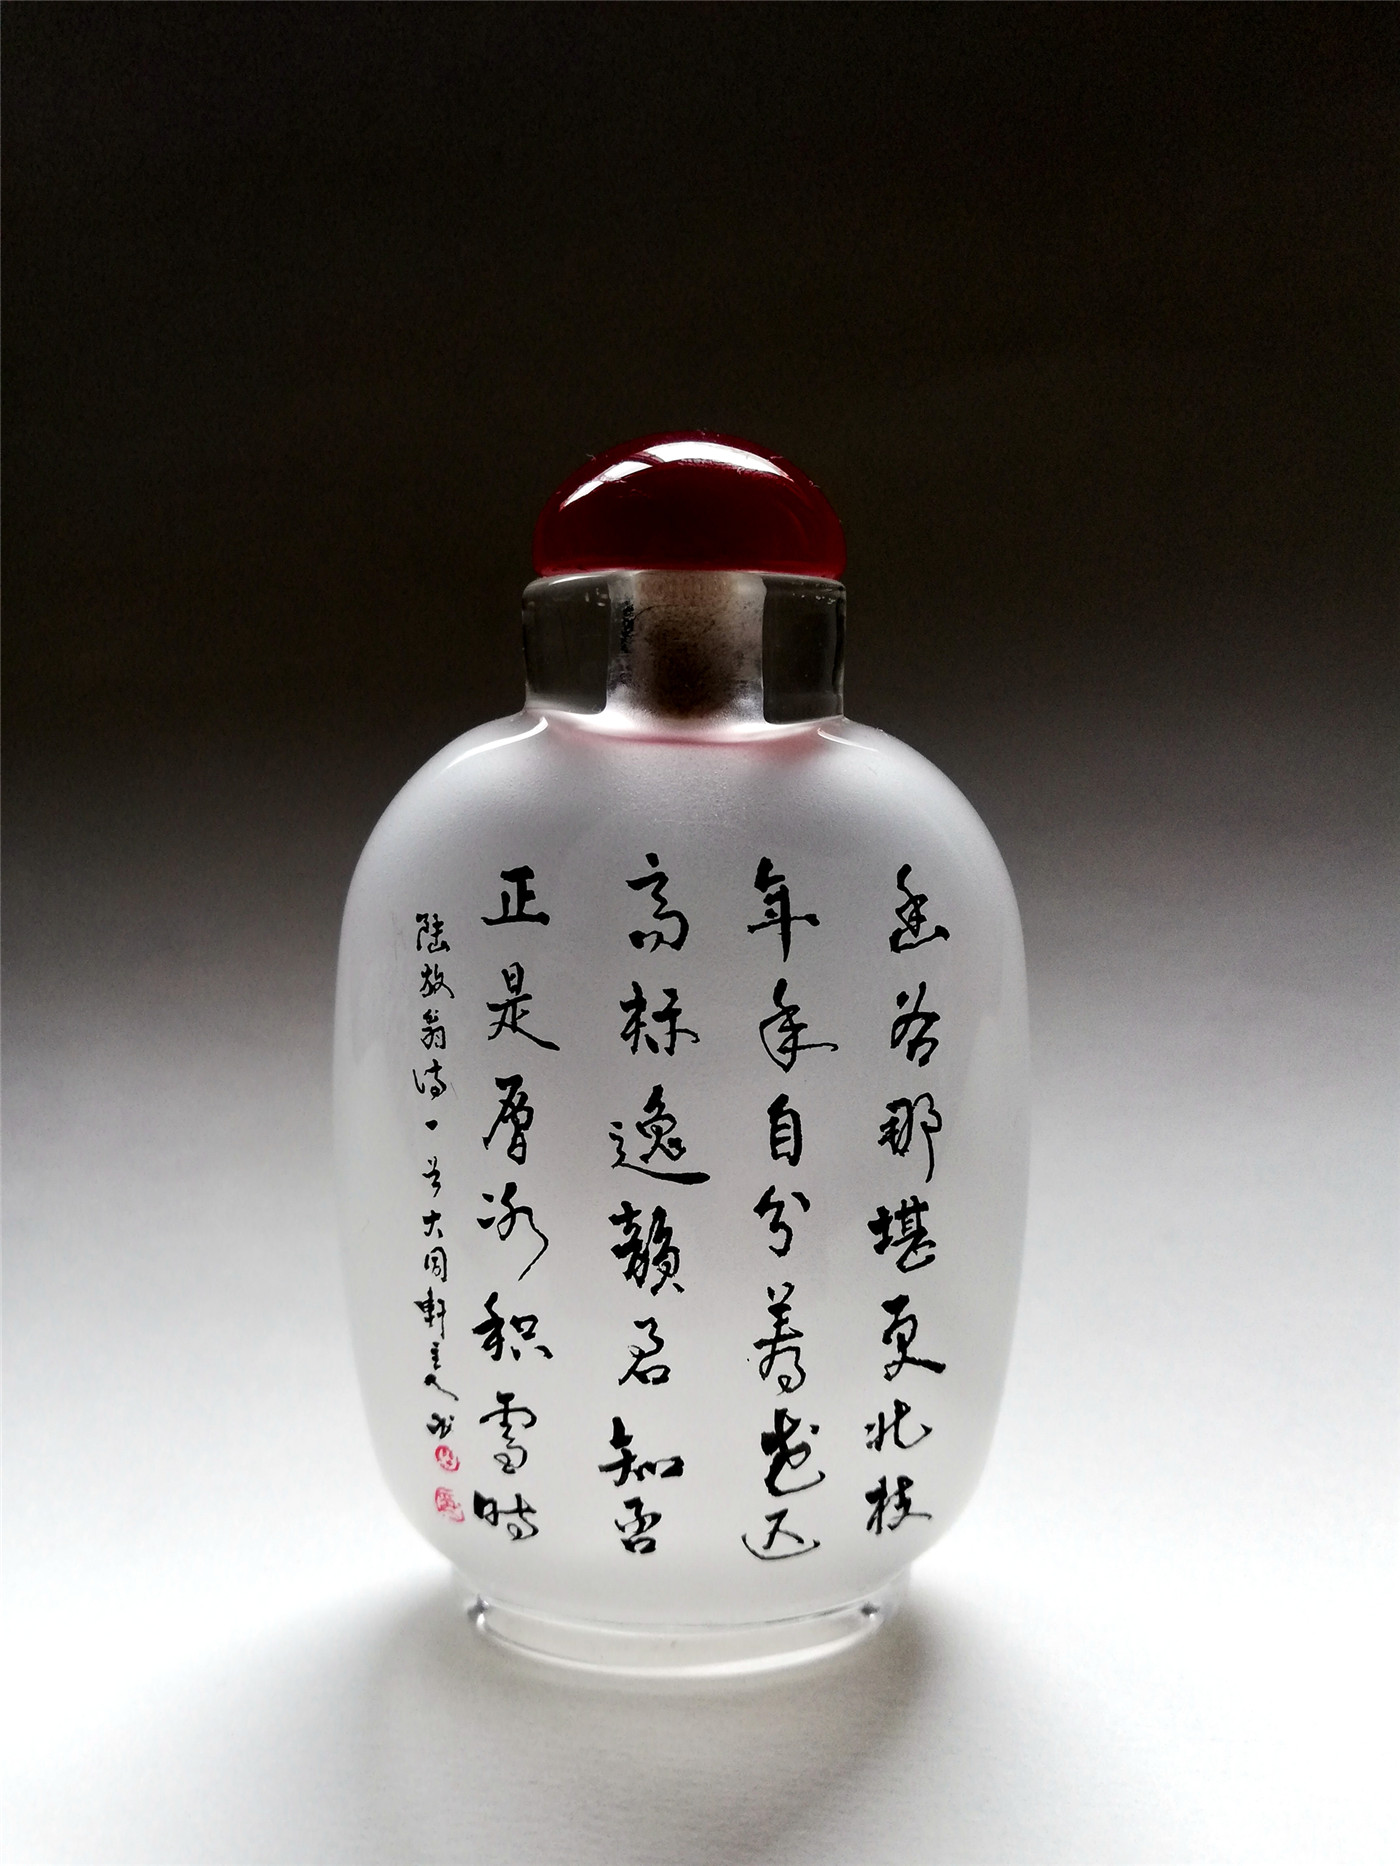 幽谷那堪更北枝
年年自分著花迟
高标逸韵君知否
正是层冰积雪时
陆放翁诗一首大周轩主人书